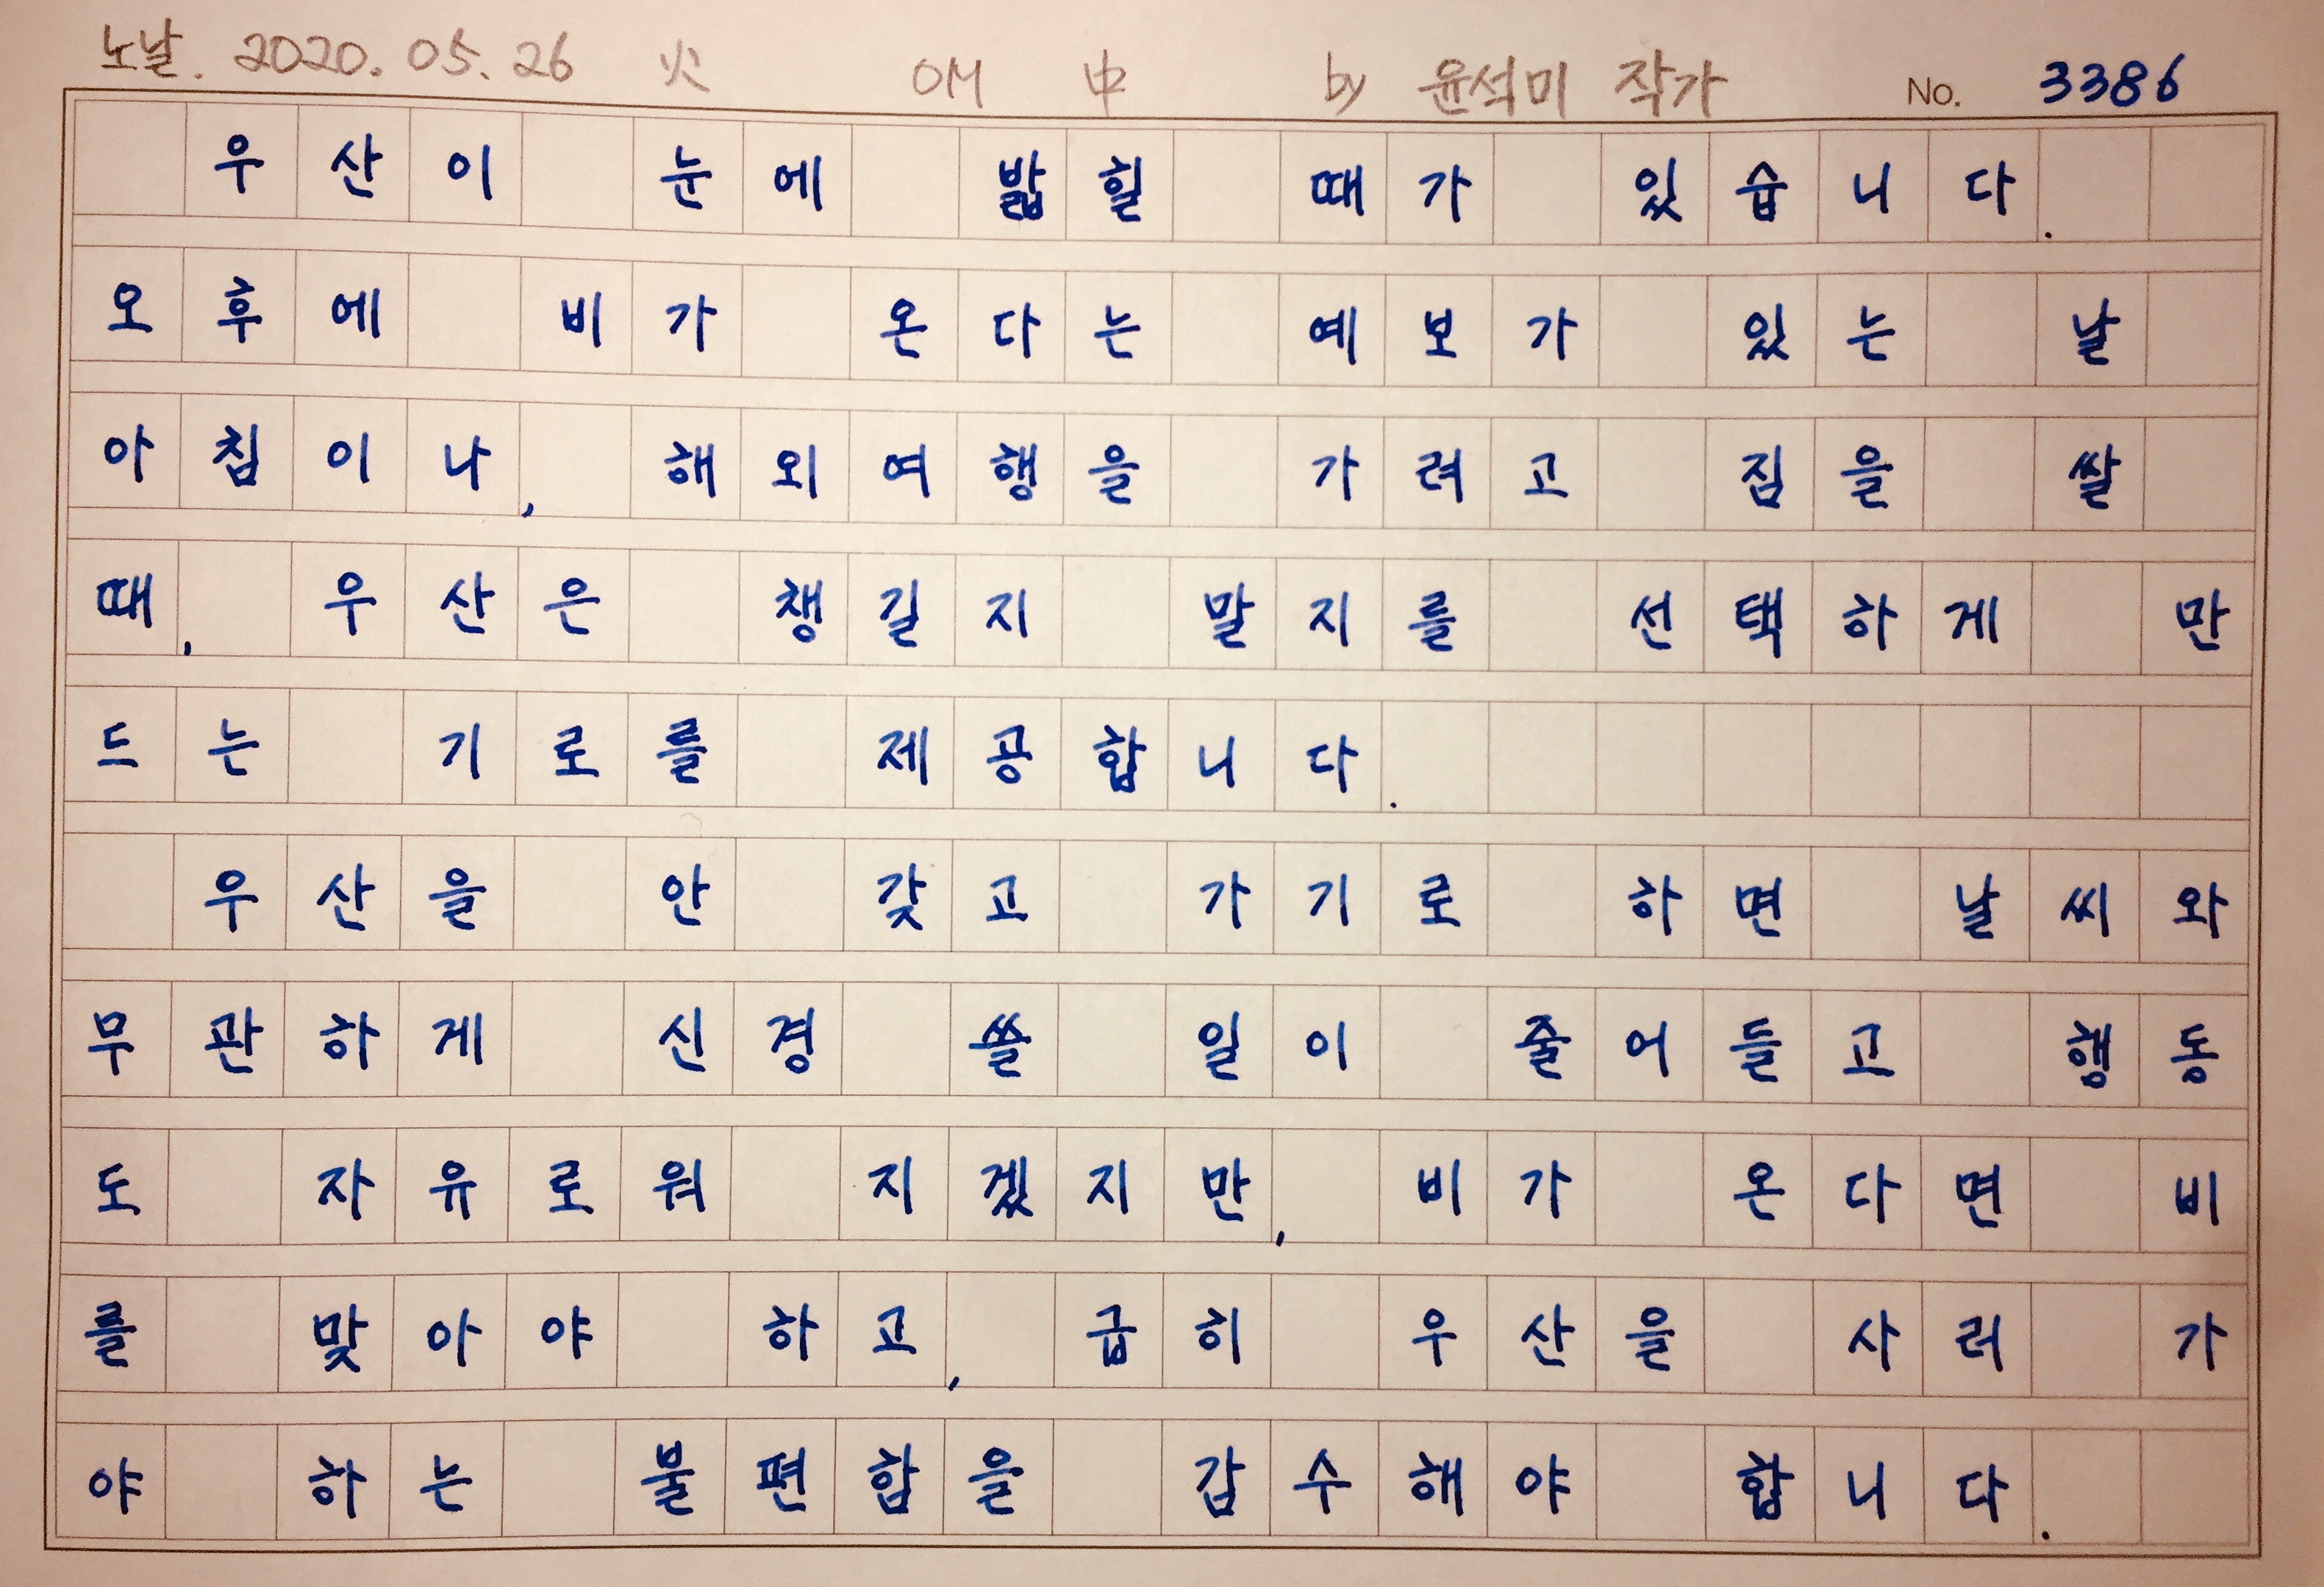 노날. 2020. 05. 26 火 OM 中 by 윤석미 작가 No. 3386
우산이 눈에 밟힐 때가 있습니다.
오후에 비가 온다는 예보가 있는 날
아침이나, 해외여행을 가려고 짐을 쌀
때, 우산은 챙길지 말지를 선택하게 만
드는 기로를 제공합니다.
우산을 안 갖고 가기로 하면 날씨와
무관하게 신경 쓸 일이 줄어들고 행동
도 자유로워 지겠지만, 비가 온다면 비
를 맞아야 하고, 급히 우산을 사러 가
야 하는 불편함을 감수해야 합니다.